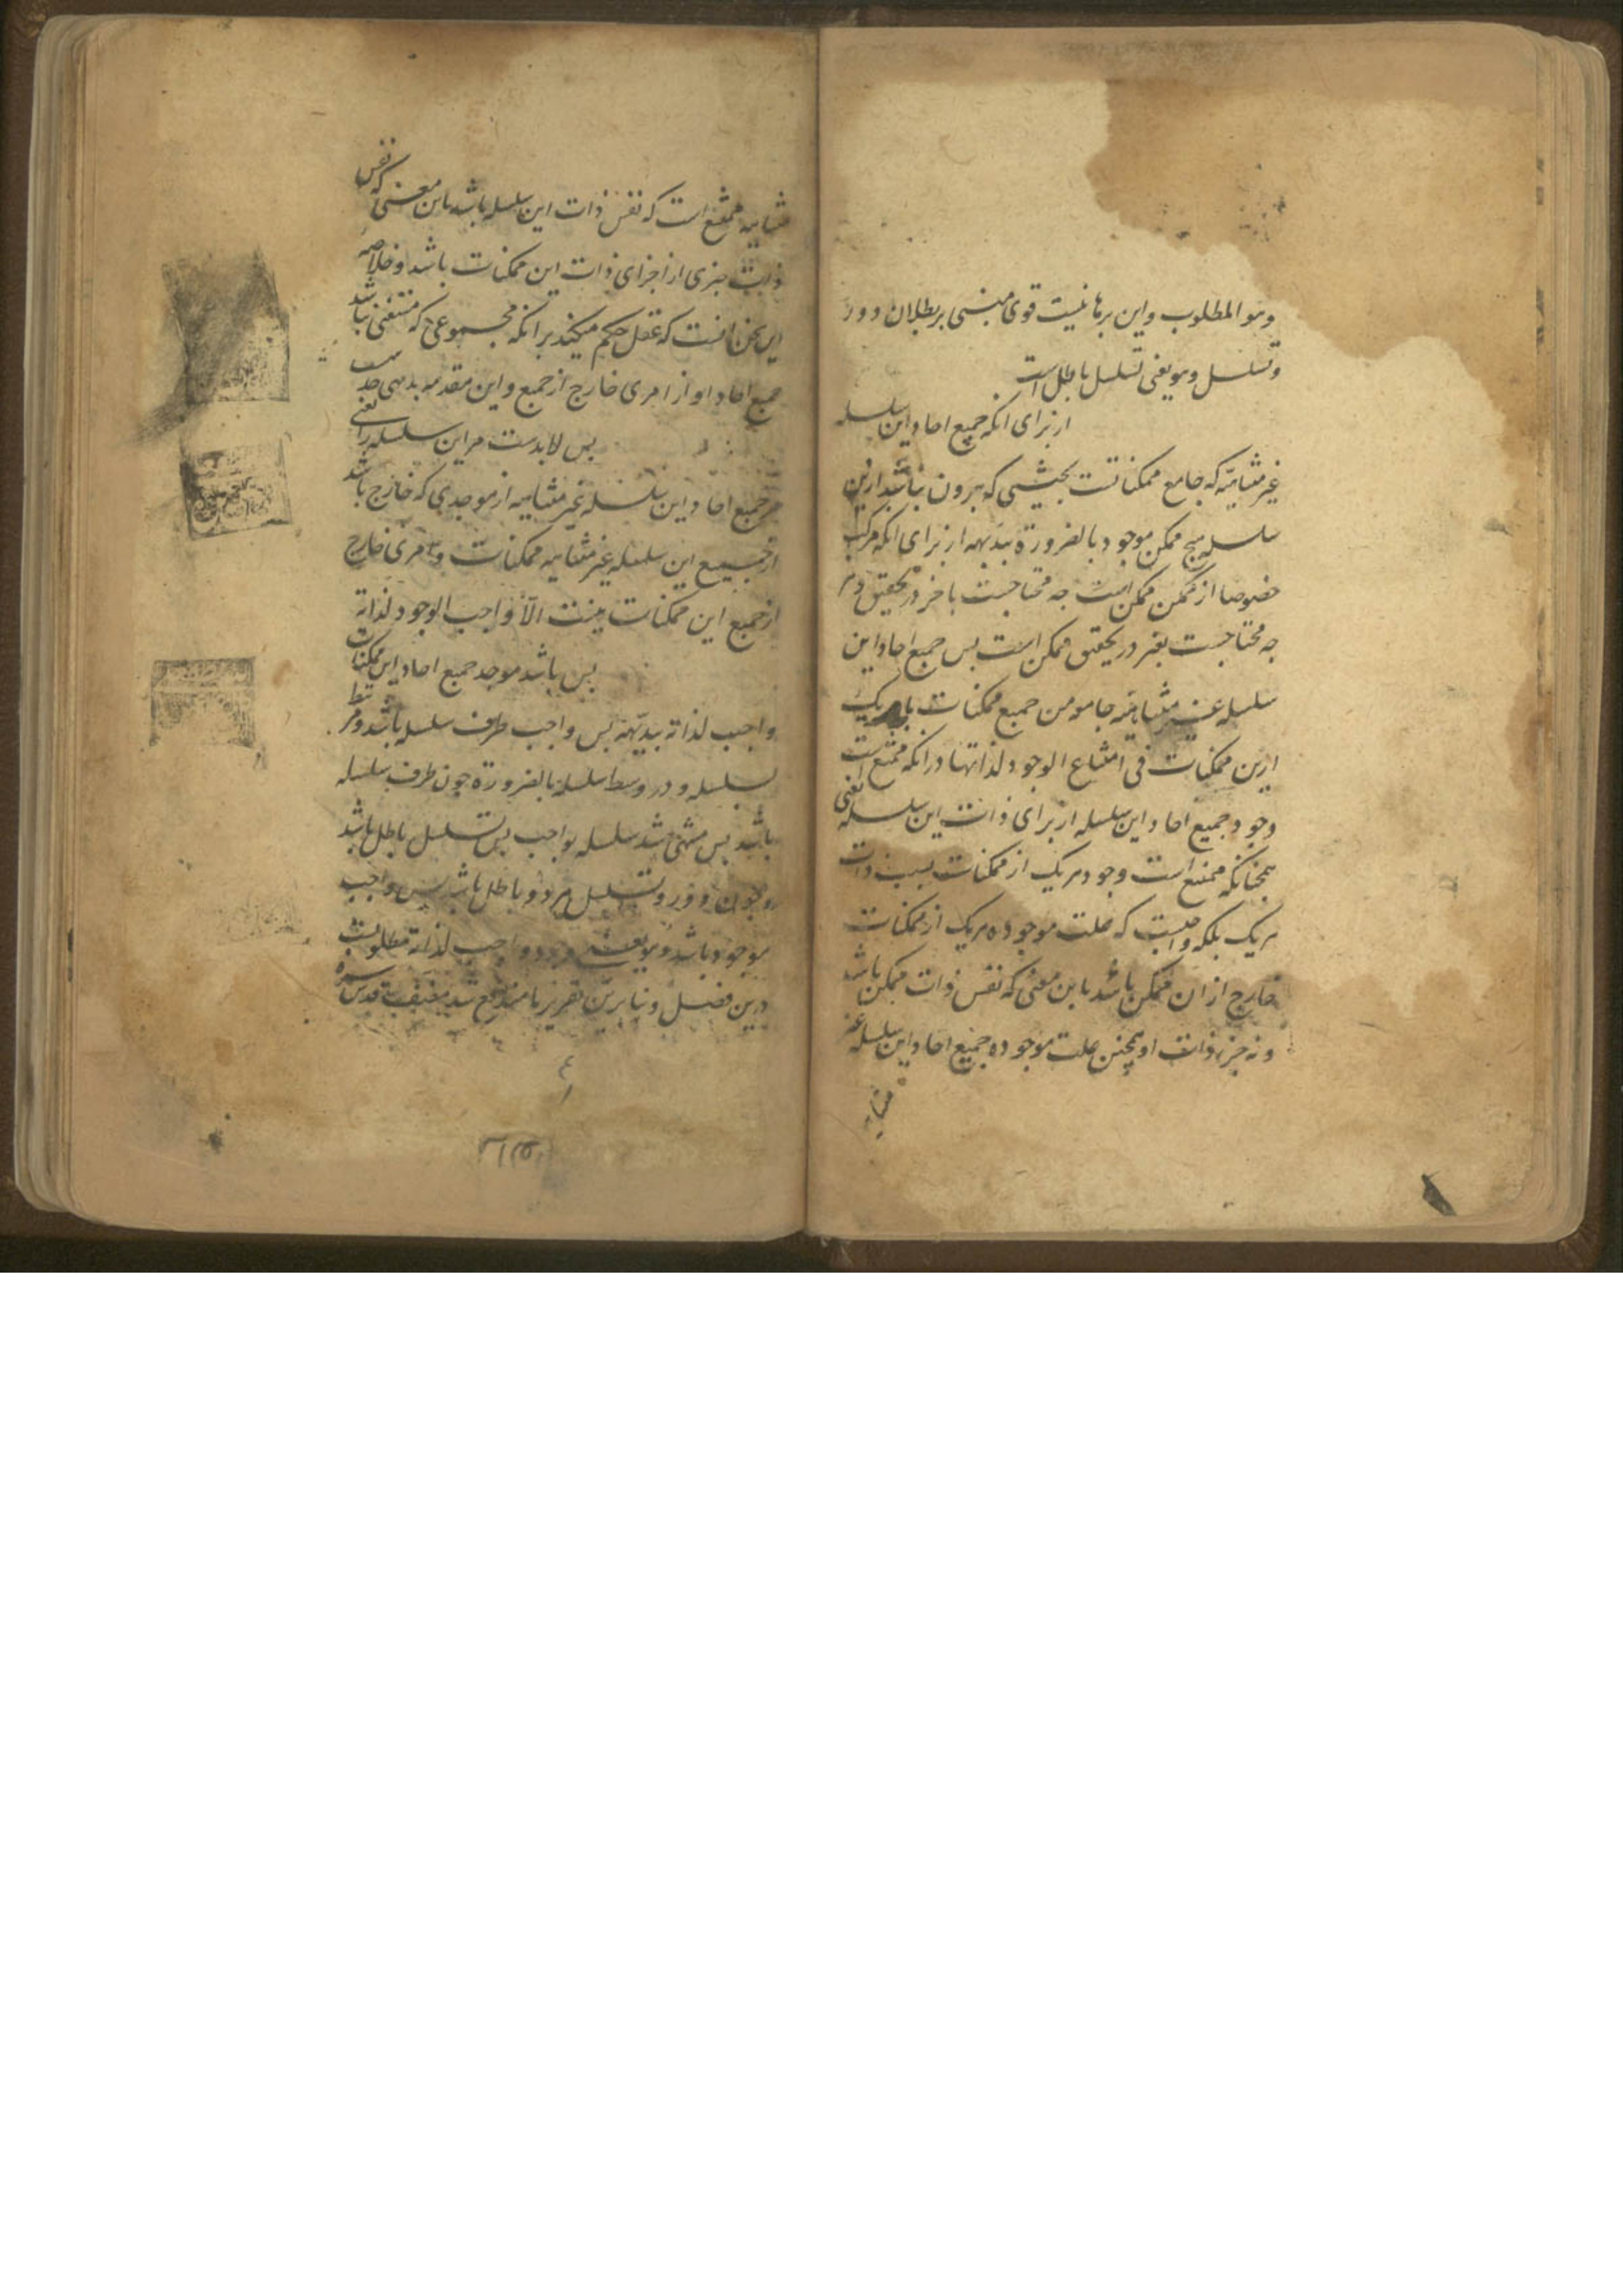 وهو المطلوب واین برهانیست قوی مبنی بر بطلان دور
وتسلسل وهو یعنی تسلسل باطل است
از برای انکه جمیع احاد این سلسله
غیر متناهیه که جامع ممکناتست بحیثیتی که بیرون نباشد ازین
سلسله هیچ ممکن موجود بالضرورة بدیهه از برای انکه مرکب
خصوصا از ممکن ممکن است چه محتاجست باخر در تحقیق وهر
چه محتاجست بغیر در تحقیق ممکن است پس جمیع احاد این
سلسله غیر متناهیه جامعه من جمیع ممکنات با هر یک
ازین ممکنات فی امتناع الوجود لذاتها در انکه ممتنع است
وجود جمیع احاد این سلسله از برای ذات این سلسله یعنی
همچنانکه ممتنع است وجود هر یک از ممکنات بسبب ذات
هر یک بلکه واجبست که علت موجوده هر یک از ممکنات
خارج از ان ممکن باشد باین معنی که نفس ذات ممکن باشد
ونه جزء ذات او همچنین علت موجوده جمیع احاد این سلسله غیر
متناهیه
متناهیه ممتنع است که نفس ذات این سلسله باشد باین معنی که نفس
ذات جزی از اجزای ذات این ممکنات باشد وخلاصه
این سخن انست که عقل حکم میکند بر انکه مجموعی که مستغنی باشد
جمیع احاد او از امری خارج از جمیع واین مقدمه بدیهی
پس لابدست مر این سلسله را یعنی
مر جمیع احاد این سلسله غیر متناهیه از موجدی که خارج باشد
از جمیع این سلسله غیر متناهیه ممکنات وامری خارج
از جمیع این ممکنات نیست الا واجب الوجود لذاته
پس باشد موجد جمیع احاد این ممکنات
واجب لذاته بدیهه پس واجب طرف سلسله باشد
سلسله ودر وسط سلسله بالضرورة چون طرف سلسله
باشد پس منتهی شد سلسله بواجب پس تسلسل باطل باشد
وچون دور وتسلسل هر دو باطل باشد پس واجب
موجود باشد وهو یعنی وجود واجب لذاته مطلوبست
درین فصل وبنا برین تقریر ما مندفع شد مصنف قدس سره